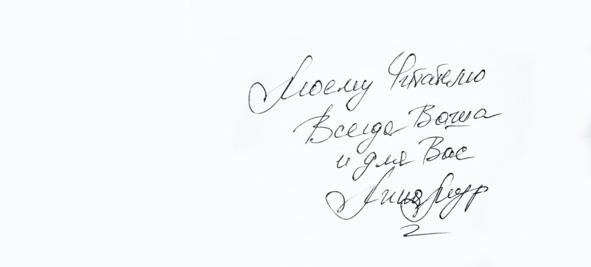 Моему Читателю
Всегда Ваша
и для Вас